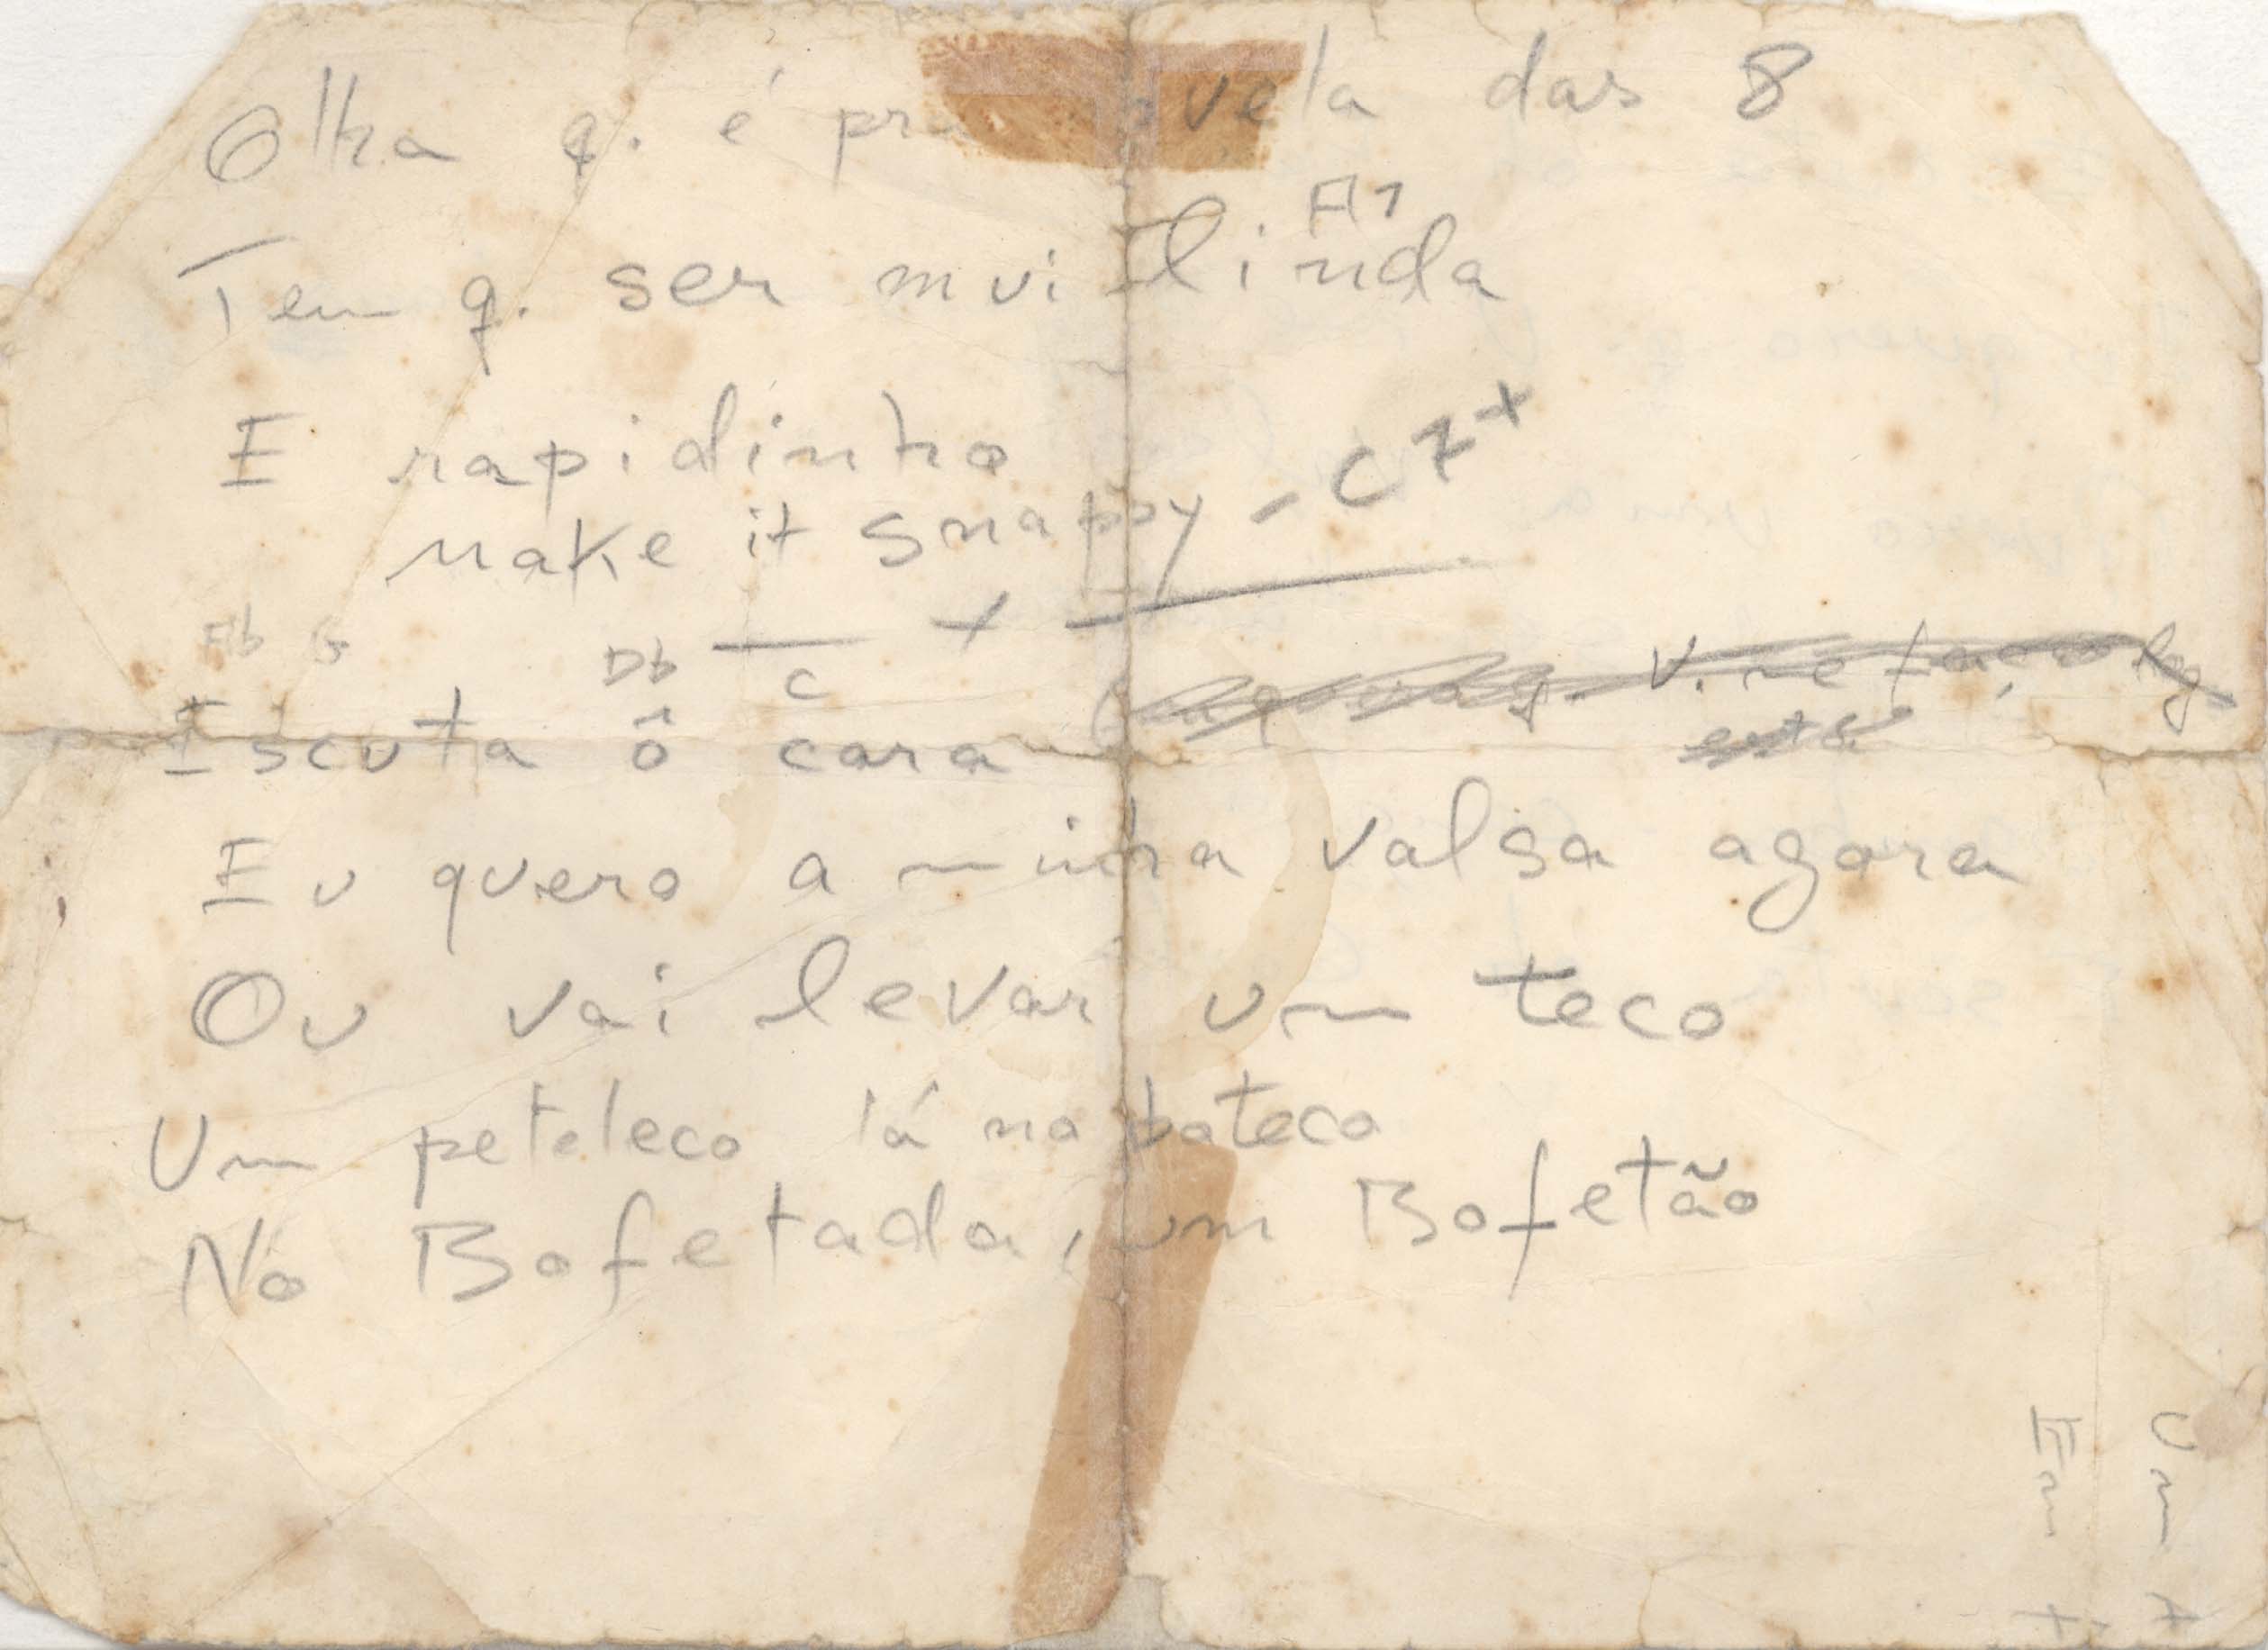 Olha q. é pra novela das 8
A7
Tem q. ser mui linda
E rapidinho
make it snappy - C7+
Ab G Db C
Escuta ô cara
V. me faça
esta
Eu quero a minha valsa agora
Ou vai levar um teco
Um peteleco lá no boteco
No Bofetada, um Bofetão
Um t
Em t